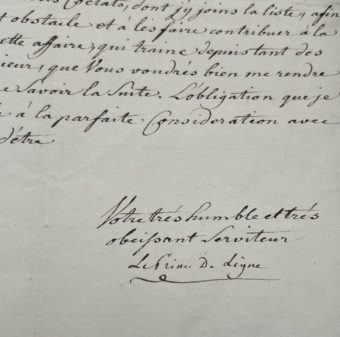 Etats, dont j'y joins la liste, afin
t obstacle et à les faire contribuer à la
ette affaire, qui traine depuis tant des
ieur, que Vous voudrés bien me rendre
e savoir la Suite. L'obligation que je
à la parfaite Consideration avec
d'être
Votre très humble et très
obeissant Serviteur
Le Prince De Ligne